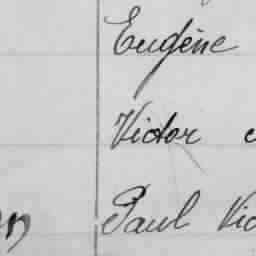 Eugène
Victor
Paul Vic